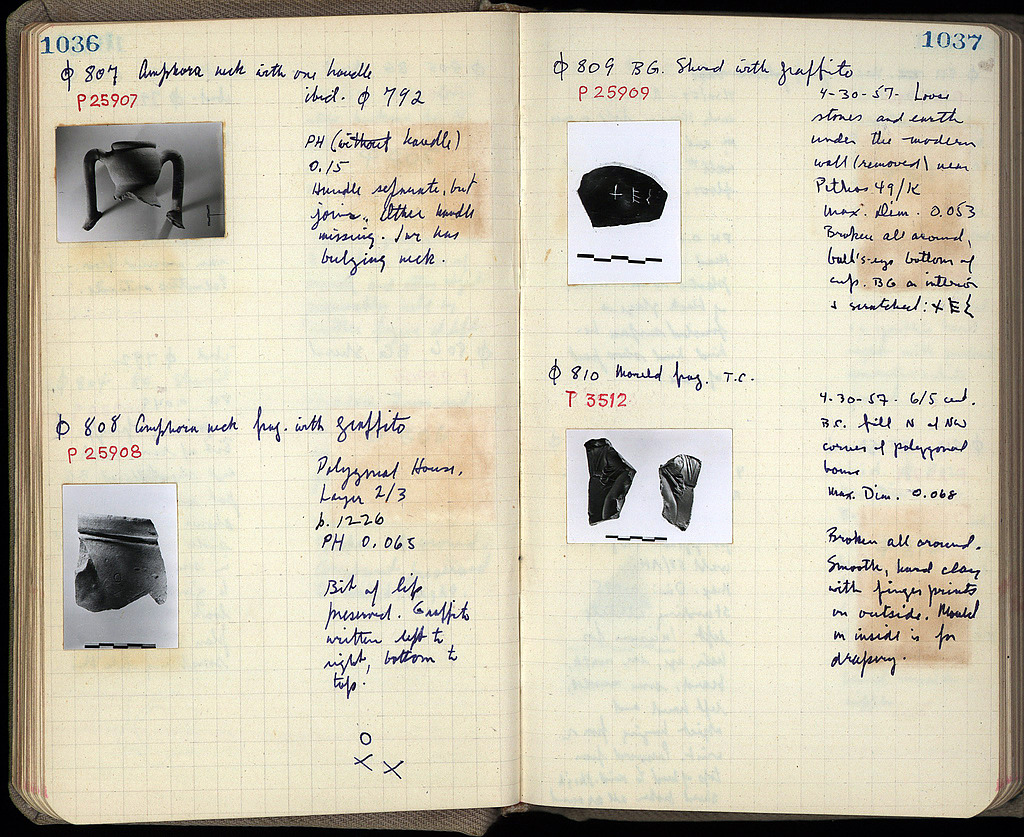 1036
Φ 807 Amphora neck with one handle
P 25907
ibid. Φ 792
PH (without handle)
0.15
Handle separate, but
joins. Other handle
missing. Jar has
bulging neck.
Φ 808 Amphora neck frag. with graffito
P 25908
Polygonal House,
Layer 2/3
b. 1226
PH 0.065
Bit of lip
preserved. Graffito
written left to
right, bottom to
top.
O
X X
1037
Φ 809 BG. Sherd with graffito
P 25909
4-30-57. Loose
stones and earth
under the modern
wall (removed) near
Pithos 49/K
Max. Dim. 0.053
Broken all around,
bull's-eye bottom of
cup. BG on interior
& scratched: + E {
+ E {
Φ 810 Mould frag. T.C.
T 3512
4-30-57. 6/5 cent.
B.C. fill N of NW
corner of polygonal
house
Max. Dim. 0.068
Broken all around.
Smooth, hard clay
with finger prints
on outside. Mould
on inside is for
drapery.